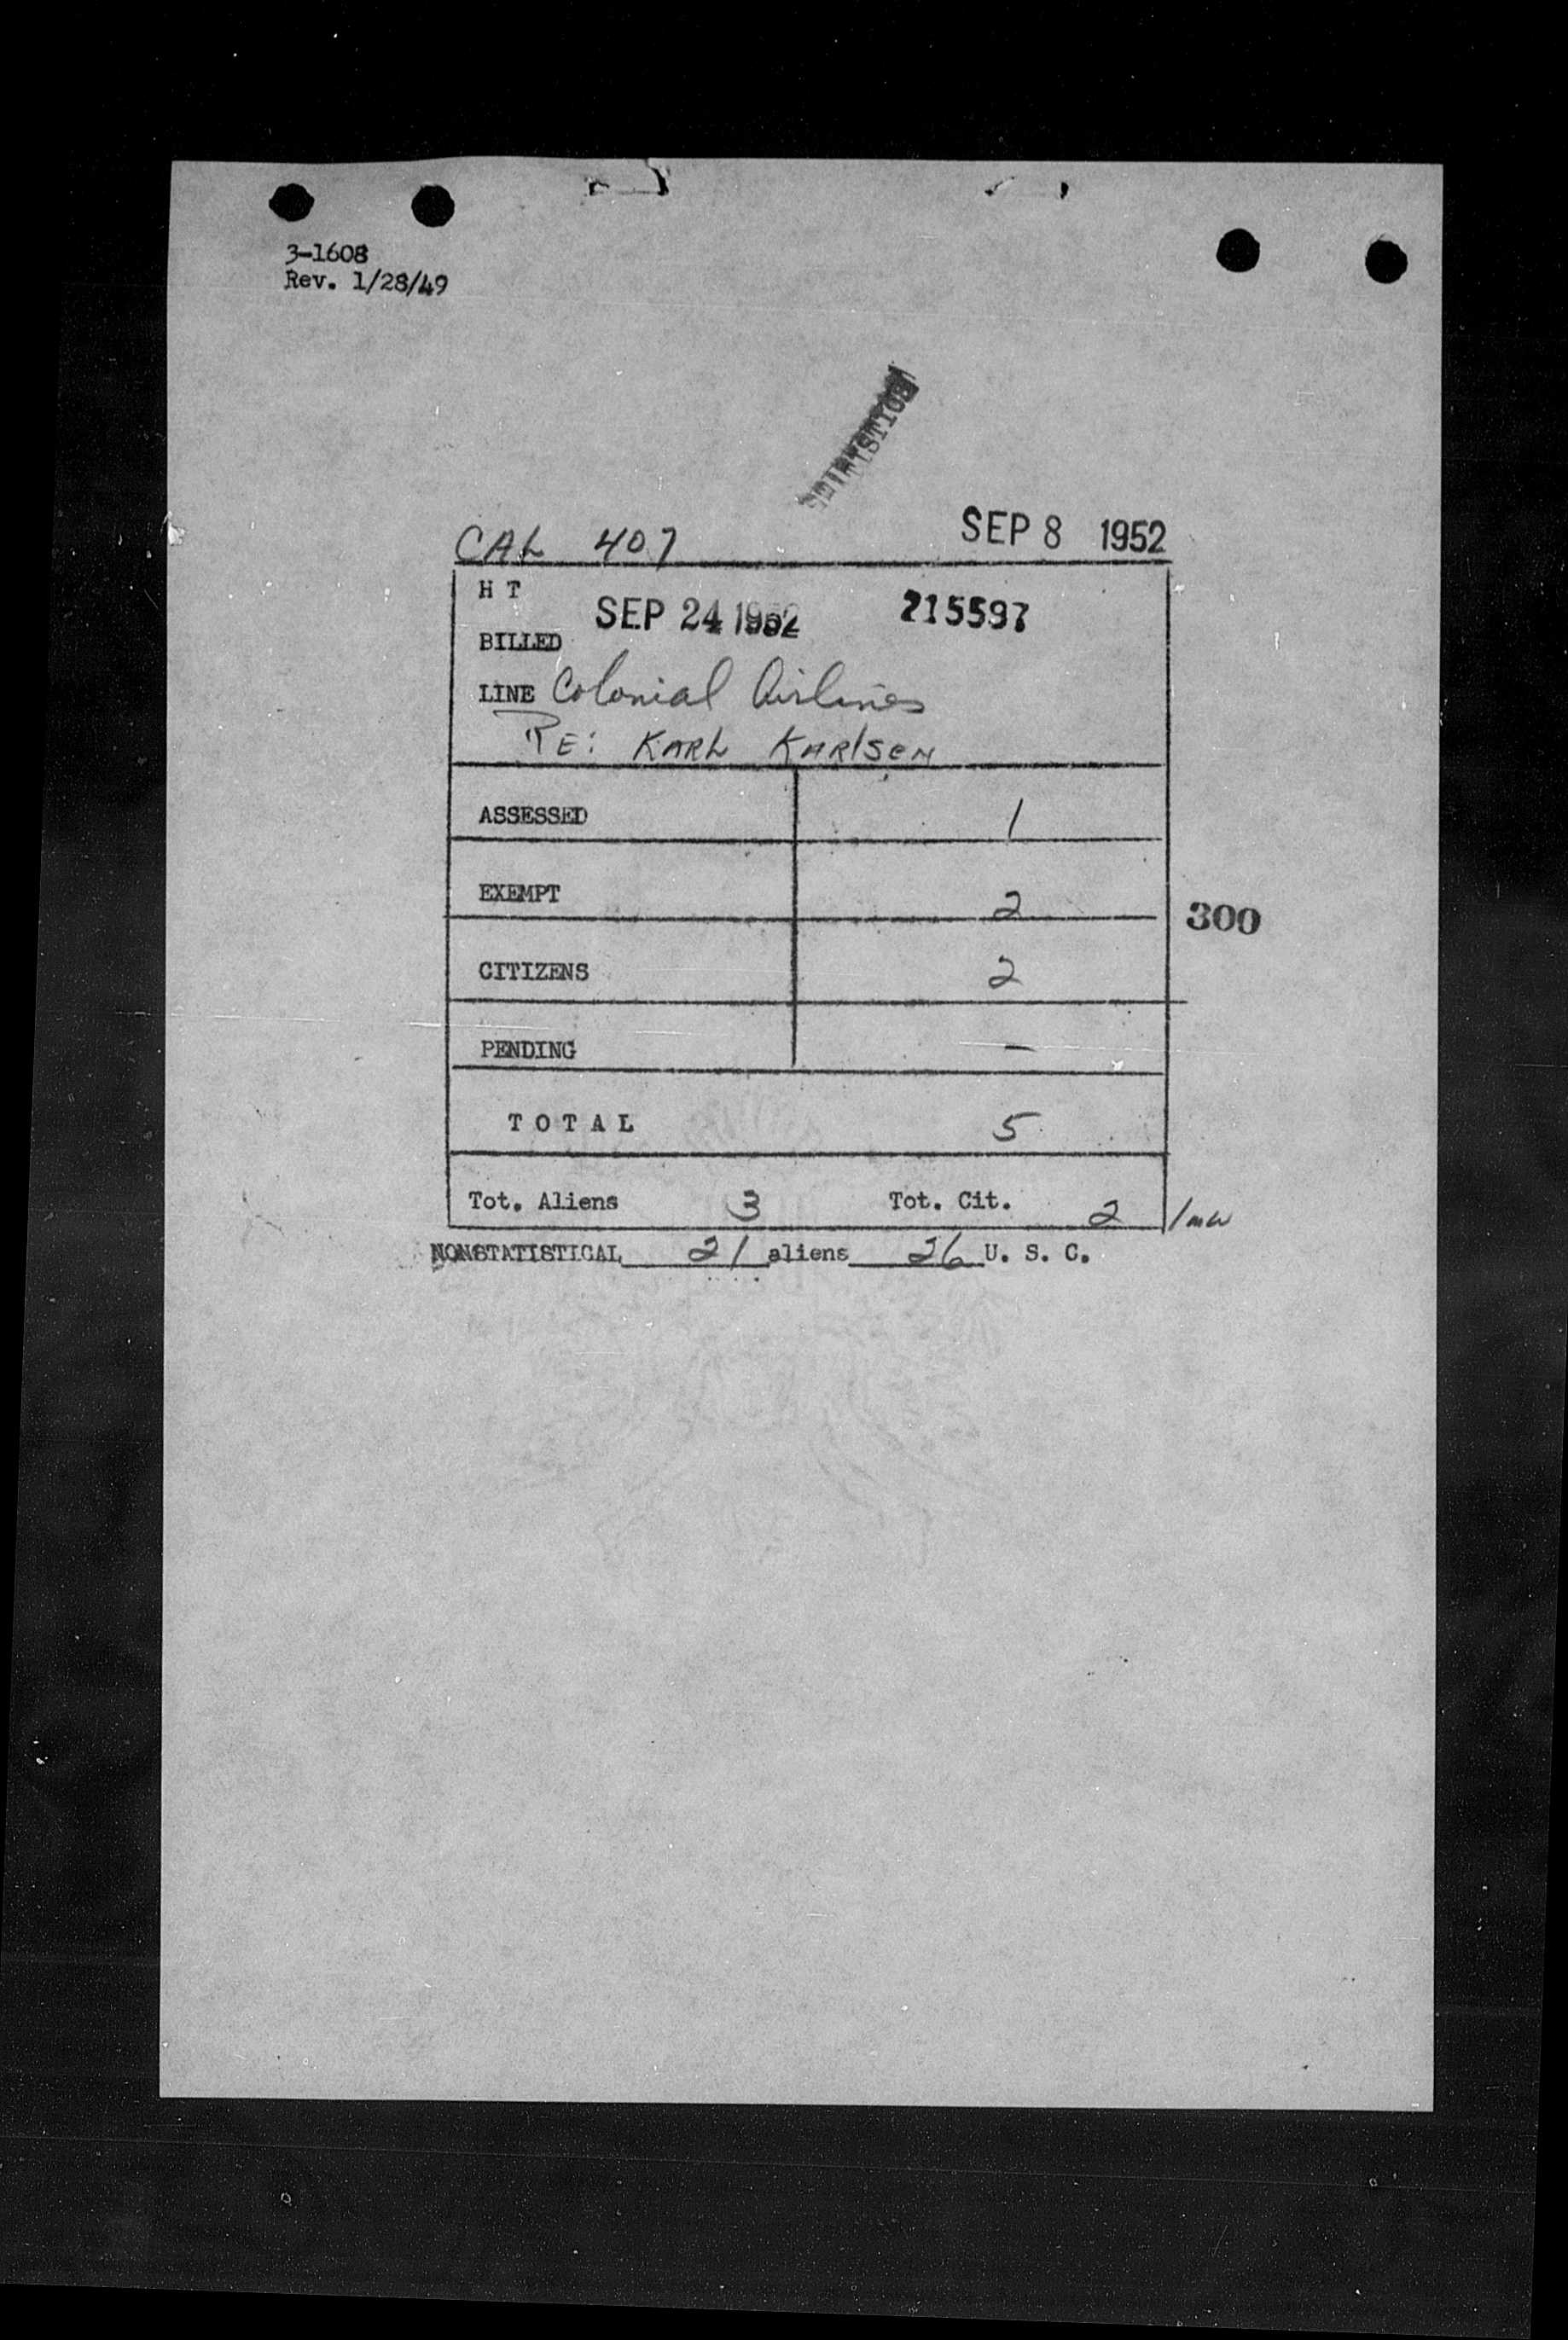 3-1608
Rev. 1/28/49
STATISTICS
CAL 407 SEP 8 1952
H T
SEP 24 1952 215597
BILLED
LINE Colonial Airlines
RE: KARL KARLSEN
ASSESSED 1
EXEMPT 2
300
CITIZENS 2
PENDING -
TOTAL 5
Tot. Aliens 3 Tot. Cit. 2 /mw
NONSTATISTICAL 21 aliens 26 U. S. C.